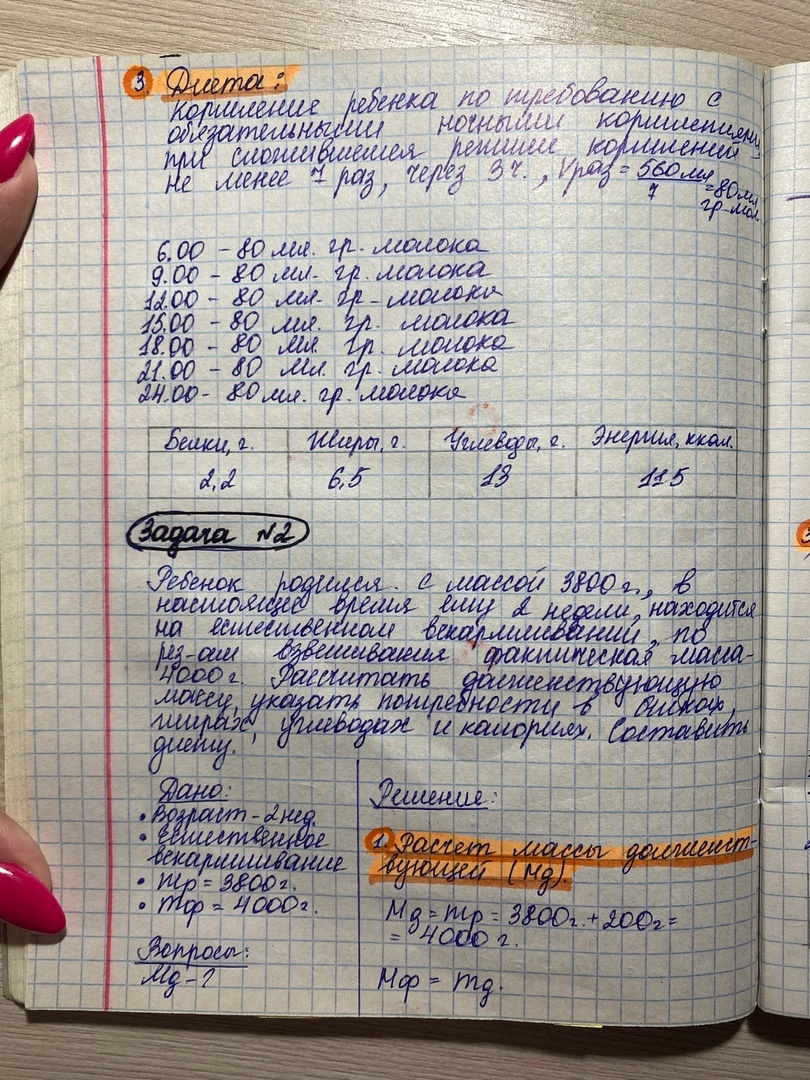 3 Диета:
Кормление ребенка по требованию с
обязательными ночными кормлениями,
при сложившемся режиме кормлений
не менее 7 раз, через 3ч., Vраз = 560 мл / 7 = 80 мл
гр. мол.
6.00 - 80 мл. гр. молока
9.00 - 80 мл. гр. молока
12.00 - 80 мл. гр. молока
15.00 - 80 мл. гр. молока
18.00 - 80 мл. гр. молока
21.00 - 80 мл. гр. молока
24.00 - 80 мл. гр. молока
Белки, г. Жиры, г. Углеводы, г. Энергия, ккал.
2,2 6,5 13 115
Задача №2
Ребенок родился с массой 3800 г., в
настоящее время ему 2 недели, находится
на естественном вскармливании, по
рез-ам взвешивания фактическая масса-
4000 г. Рассчитать долженствующую
массу, указать потребности в белках,
жирах, углеводах и калориях. Составить
диету.
Дано:
• Возраст - 2 нед.
• Естественное
вскармливание
• mр = 3800 г.
• mф = 4000 г.
Вопросы:
Мд - ?
Решение:
1. Расчет массы долженст-
вующей (Мд).
Мд = mр = 3800 г. + 200 г =
= 4000 г.
Мф = mд.